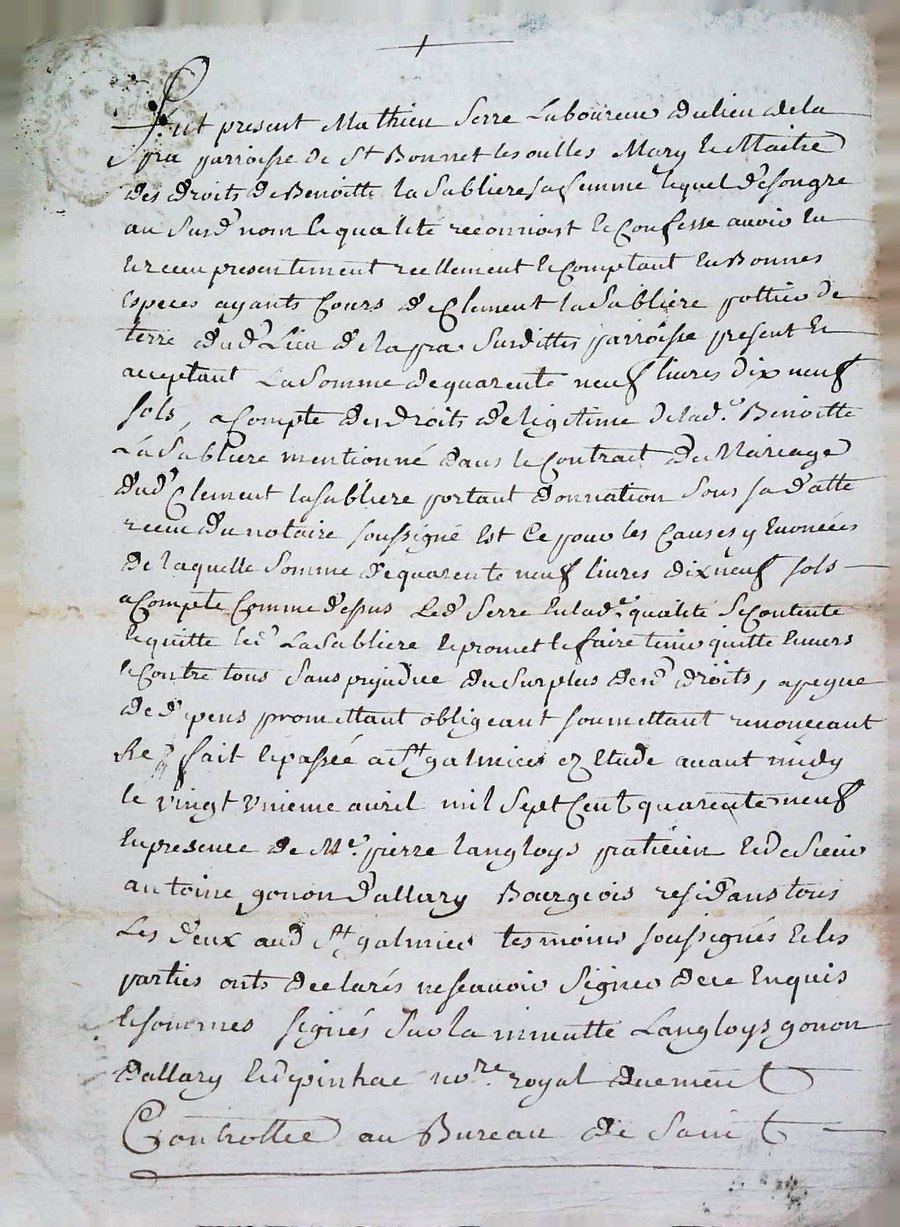 Fut present Mathieu Serre Laboureur du lieu de la
pra parroisse de St Bonnet les oulles Mary et Maitre
des droits de Benoitte la Sabliere sa femme lequel de son gre
au Susd nom et qualité reconnoit et Confesse avoir Eu
et receu presentement reellement et Comptant En Bonnes
especes ayants Cours de Clement la Sabliere pottier de
terre dud Lieu de la pra Surditte parroisse present et
acceptant La Somme de quarente neuf livres dix neuf
sols, a Compte des droits de legitime de lad.e Benoitte
La Sabliere mentionné dans le Contrait de Mariage
dud Clement la Sabliere portant donnation Sous sa datte
receu du notaire soussigné Est Ce pour les Causes y Enoncées
de laquelle Somme de quarente neuf livres dix neuf sols
a Compte Comme dessus Led Serre En lad.e qualité Se Contente
et quitte led La Sabliere et promet le faire tenir quitte Envers
et Contre tous Sans prejudice du Surplus desd droits, a peyne
de d pens promettant obligeant soumettant renonceant
fait et passée a St galmier ez Etude avant midy
le vingt vnieme avril mil Sept Cent quarente neuf
En presence de Me. pierre langloys praticien et de Sieur
antoine gonon d'allary Bourgeois residans tous
Les deux aud St galmier tesmoins soussignés et les
parties onts declarés ne scavoir Signer de ce Enquis
et sommes signés Sur la minutte Langloys gonon
dallary et dpinhac no.re royal duement
Controllee au Bureau de Saint